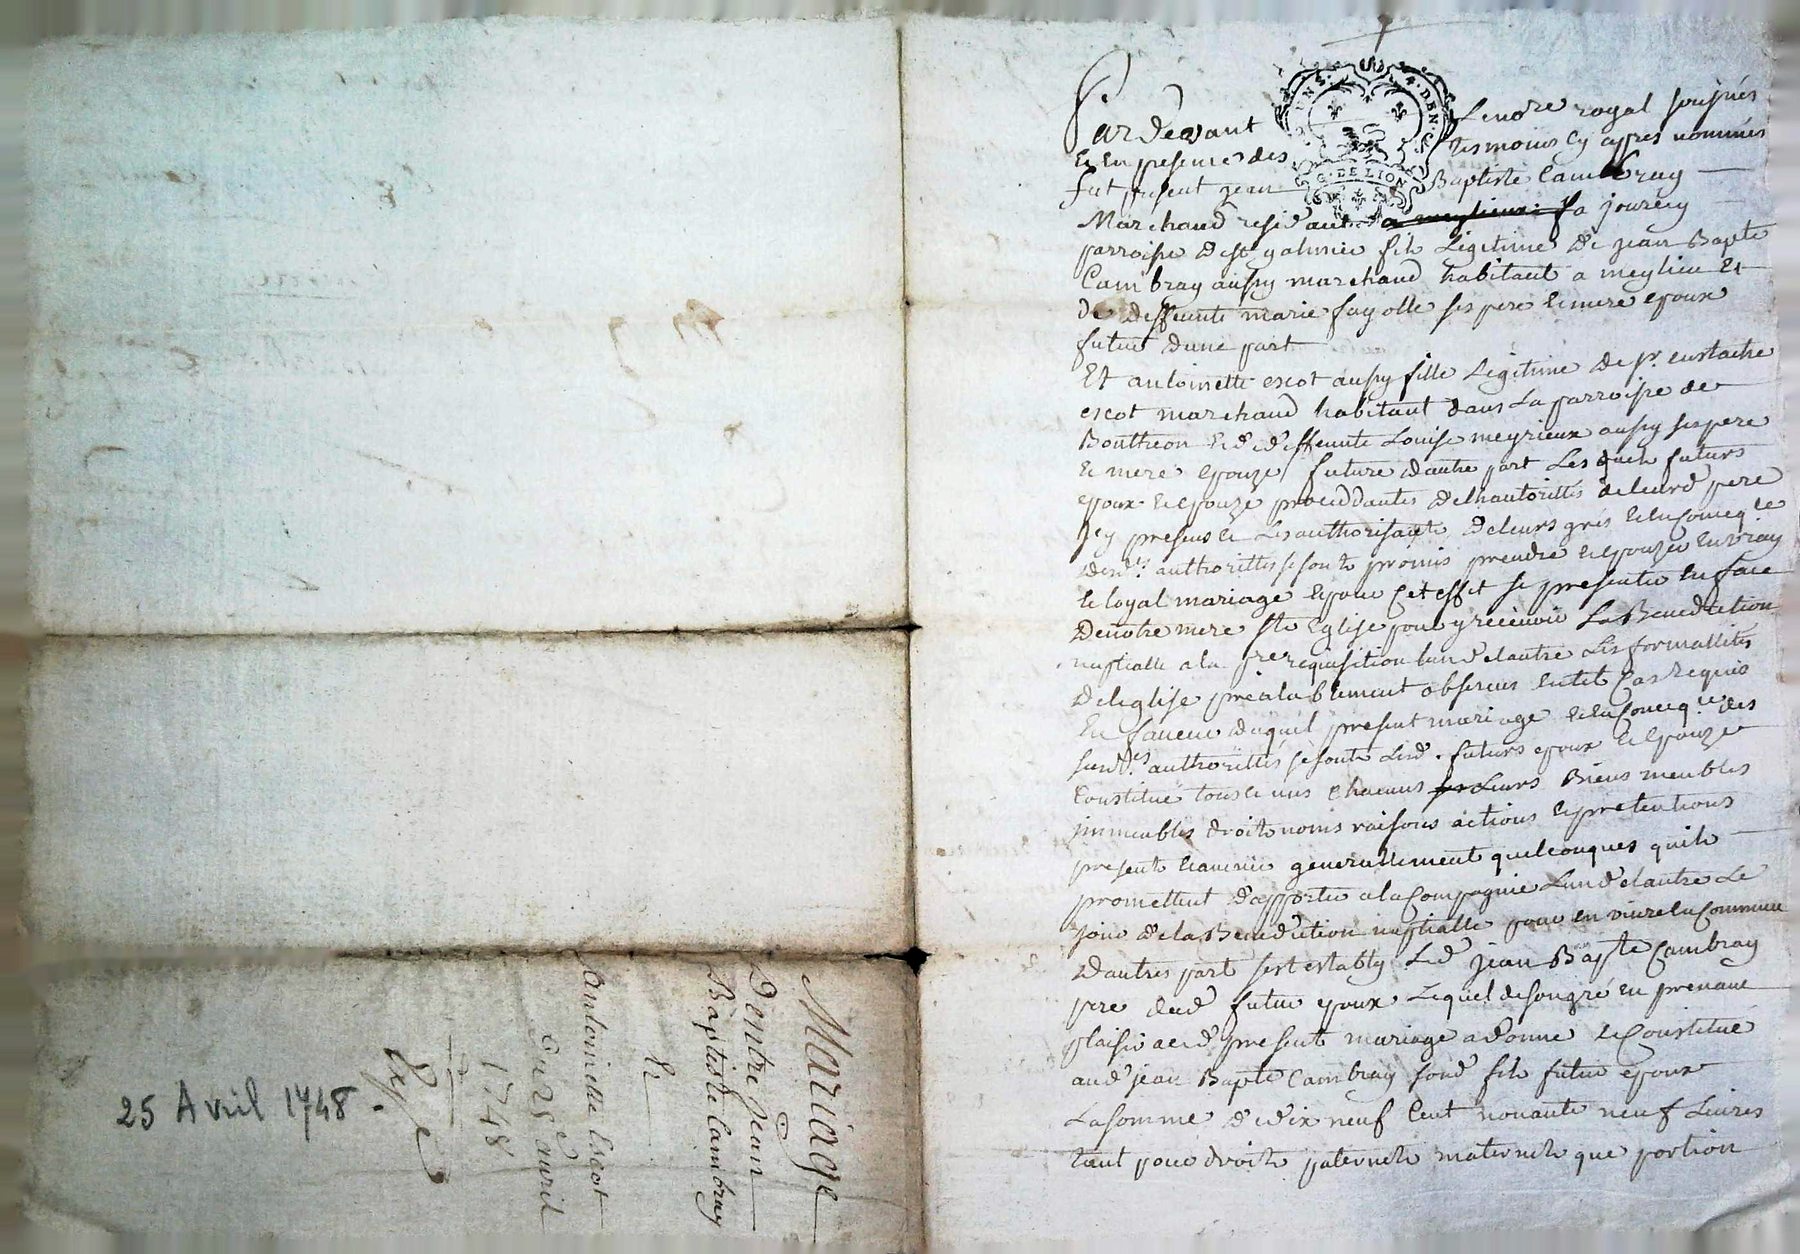 Pardevant Lenore royal sousjnés
Et En presence des tesmoins Cy appres nommés
fut present jean Baptiste Cambray
Marchand residant a meylieu a jourcey
parroisse dest galmier fils Legitime de jean Bapte
Cambray aussy marchand habitant a meylieu Et
de deffeunte marie fayolle ses pere et mere epoux
futur dune part
Et antoinette escot aussy fille Legitime de sr. eustache
escot marchand habitant dans La parroisse de
Boutheon et de deffeunte Louise meyrieux aussy ses pere
et mere epouze future dautre part Les quels futurs
epoux et epouze proceddantes de lhautorittés de leurd pere
jcy presens et Les authorisant de leurs grés et en Conceqce
desds. authorittés se sont promis prendre et epouzer en vray
et loyal mariage et pour Cet effet se presenter en face
de notre mere Ste Eglise pour y recevoir La Benediction
nuptialle a la pre requisition lun d lautre Les formallites
de leglise prealablement observes en tel Cas requis
En faveur duquel present mariage et en Conceqce des
susds. authorittés se sont Lesd. futurs epoux et epouze
Constitué tous et uns chacuns ses Leurs Biens meubles
jmmeubles droits noms raisons actions et pretentions
present et avenir generallement quelconques quils
promettent dapporter a la Compagnie Lun d lautre Le
jour de la Benediction nuptialle pour en vivre en Commun
dautres part sest estably Led jean Bapte Cambray
pere dud futur epoux Lequel de son gré en prenant
plaisir aud present mariage a donné et Constitué
aud jean Bapte Cambray sond fils futur epoux
La somme de dix neuf Cent nonante neuf Livres
tant pour droits paternels maternels que portion
Mariage
Dentre jean
Baptiste Cambray
Et
antoinette Escot
Du 25e avril
1748
Expe
25 Avril 1748.
G. DE LION